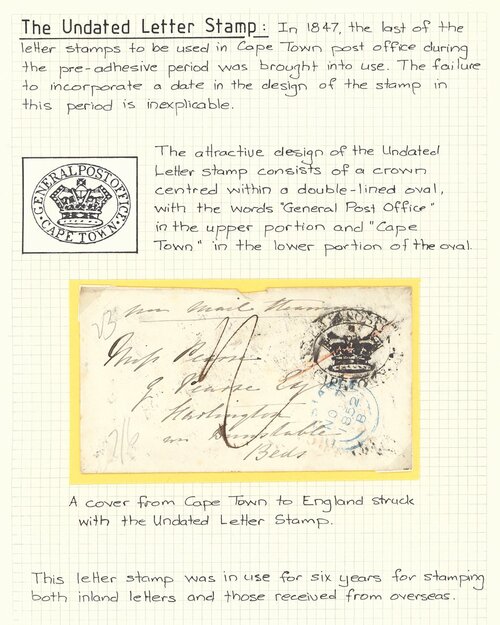 The Undated Letter Stamp: In 1847, the last of the
letter stamps to be used in Cape Town post office during
the pre-adhesive period was brought into use. The failure
to incorporate a date in the design of the stamp in
this period is inexplicable.
GENERAL POST OFFICE
CAPE TOWN
The attractive design of the Undated
Letter stamp consists of a crown
centred within a double-lined oval,
with the words "General Post Office"
in the upper portion and "Cape
Town" in the lower portion of the oval.
Mail Steamer
Miss Pearse
Pearse Esq
near Dunstable
Beds
CAPE TOWN
1852
A cover from Cape Town to England struck
with the Undated Letter Stamp.
This letter stamp was in use for six years for stamping
both inland letters and those received from overseas.